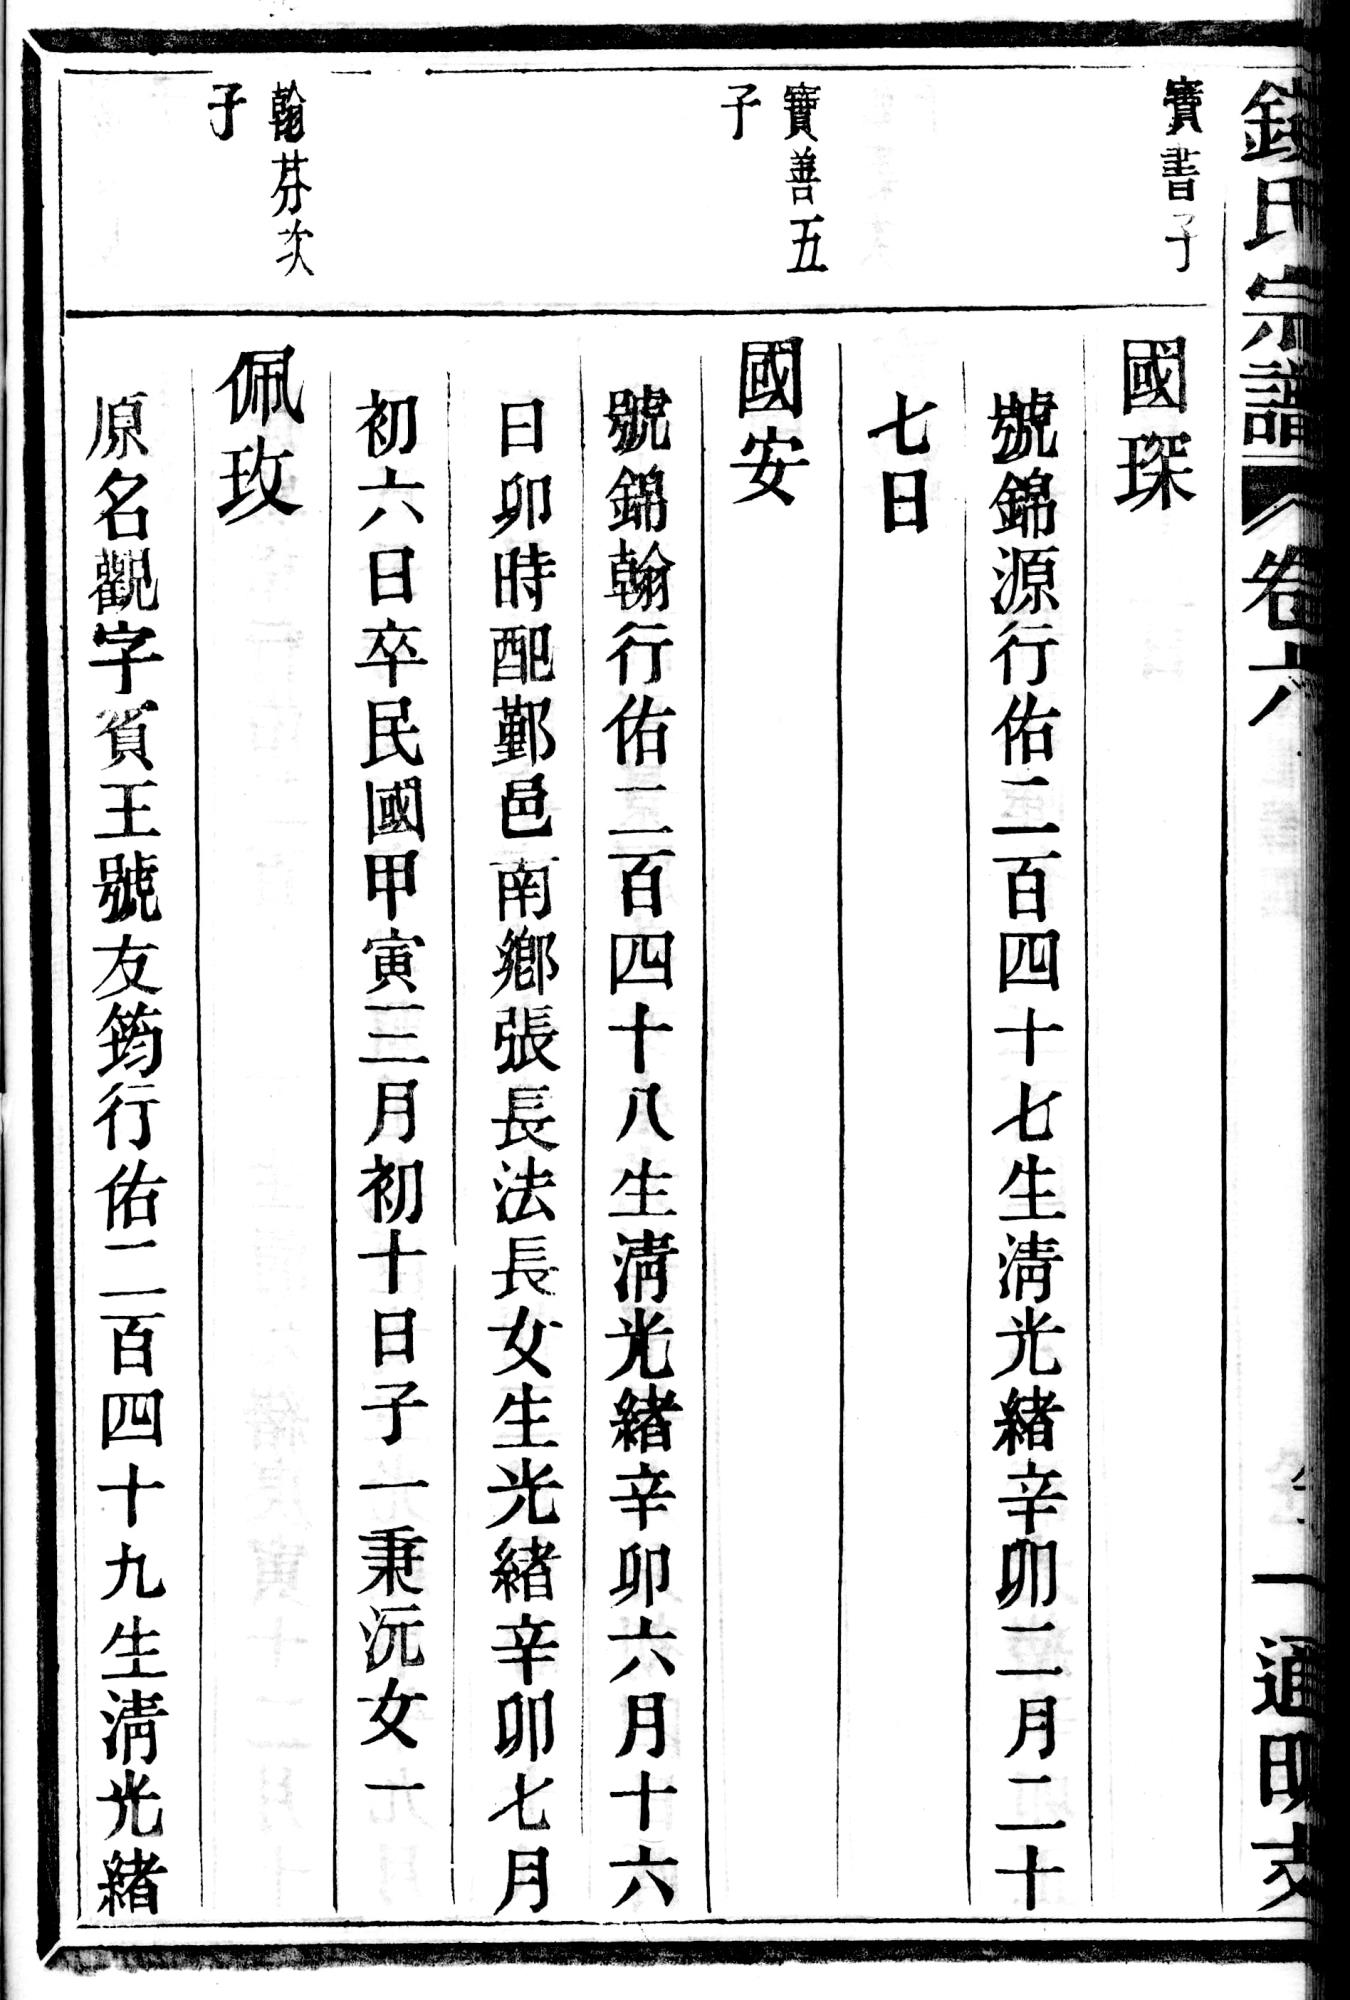 氏宗譜 卷六 一 通明支
寶書子
國琛
號錦源行佑二百四十七生清光緒辛卯二月二十
七日
寶善五
子
國安
號錦翰行佑二百四十八生清光緒辛卯六月十六
日卯時配鄞邑南鄉張長法長女生光緒辛卯七月
初六日卒民國甲寅三月初十日子一秉沅女一
翰芬次
子
佩玫
原名觀字賓王號友筠行佑二百四十九生清光緒